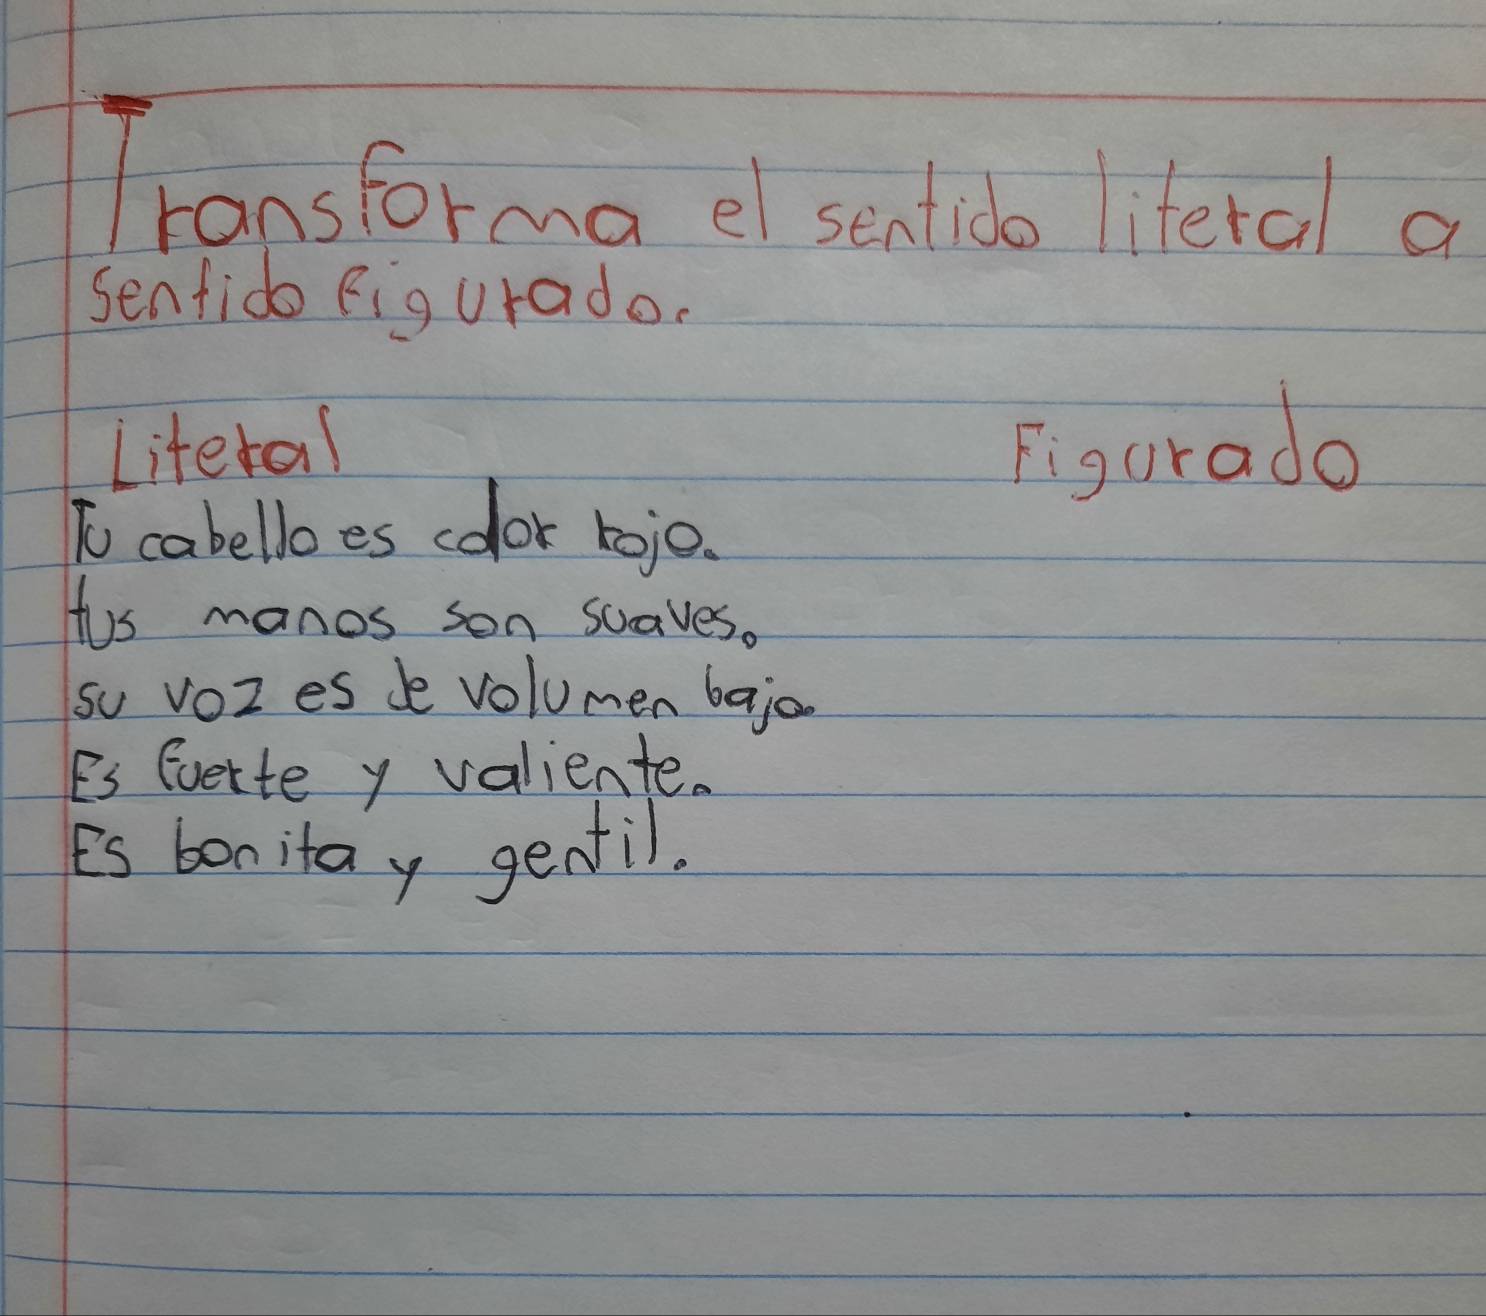 Transforma el sentido literal a
sentido figurado.
Literal Figurado
Tu cabello es color rojo.
tus manos son suaves.
su voz es de volumen bajo.
Es fuerte y valiente.
Es bonita y gentil.